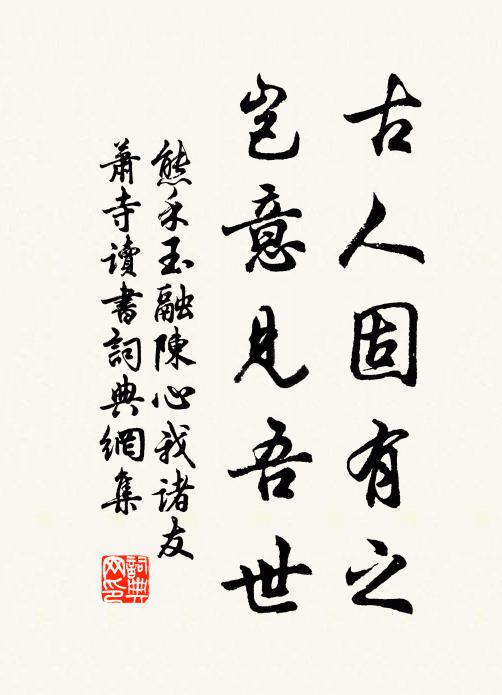 古人固有之
岂意見吾世
熊禾玉融陳心我諸友
蕭寺讀書詞典網集
詞典网印